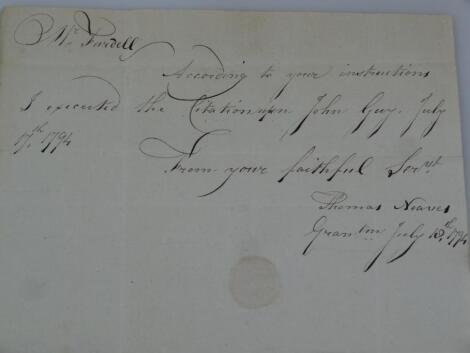 Mr. Fardell
According to your instructions
I executed the Citation upon John Guy July
17th 1794
From your faithful Servt
Thomas Neaves
July 18th 1794